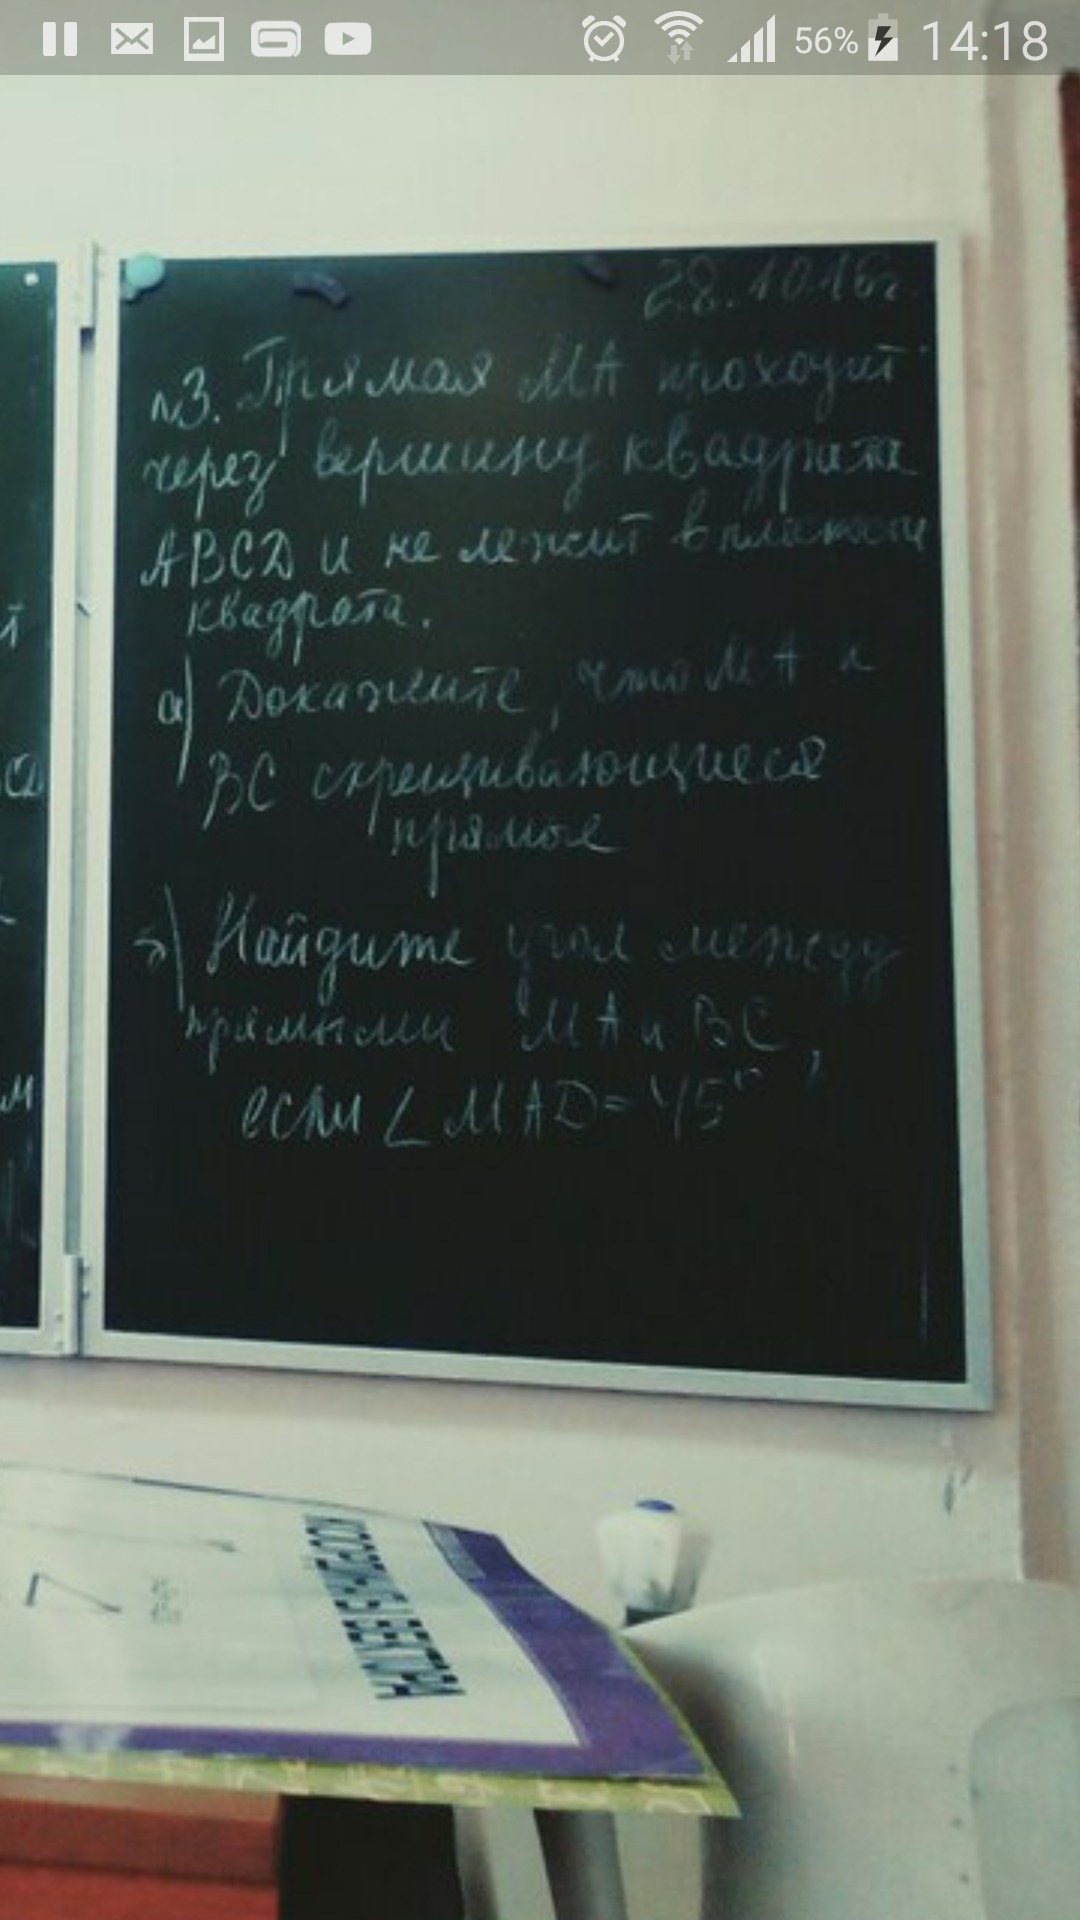 56% 14:18
28.10.16г.
№3. Прямая МА проходит
через вершину квадрата
ABCD и не лежит в плоскости
квадрата.
а) Докажите, что МА и
ВС скрещивающиеся
прямые
б) Найдите угол между
прямыми МА и ВС,
если ∠ MAD = 45°